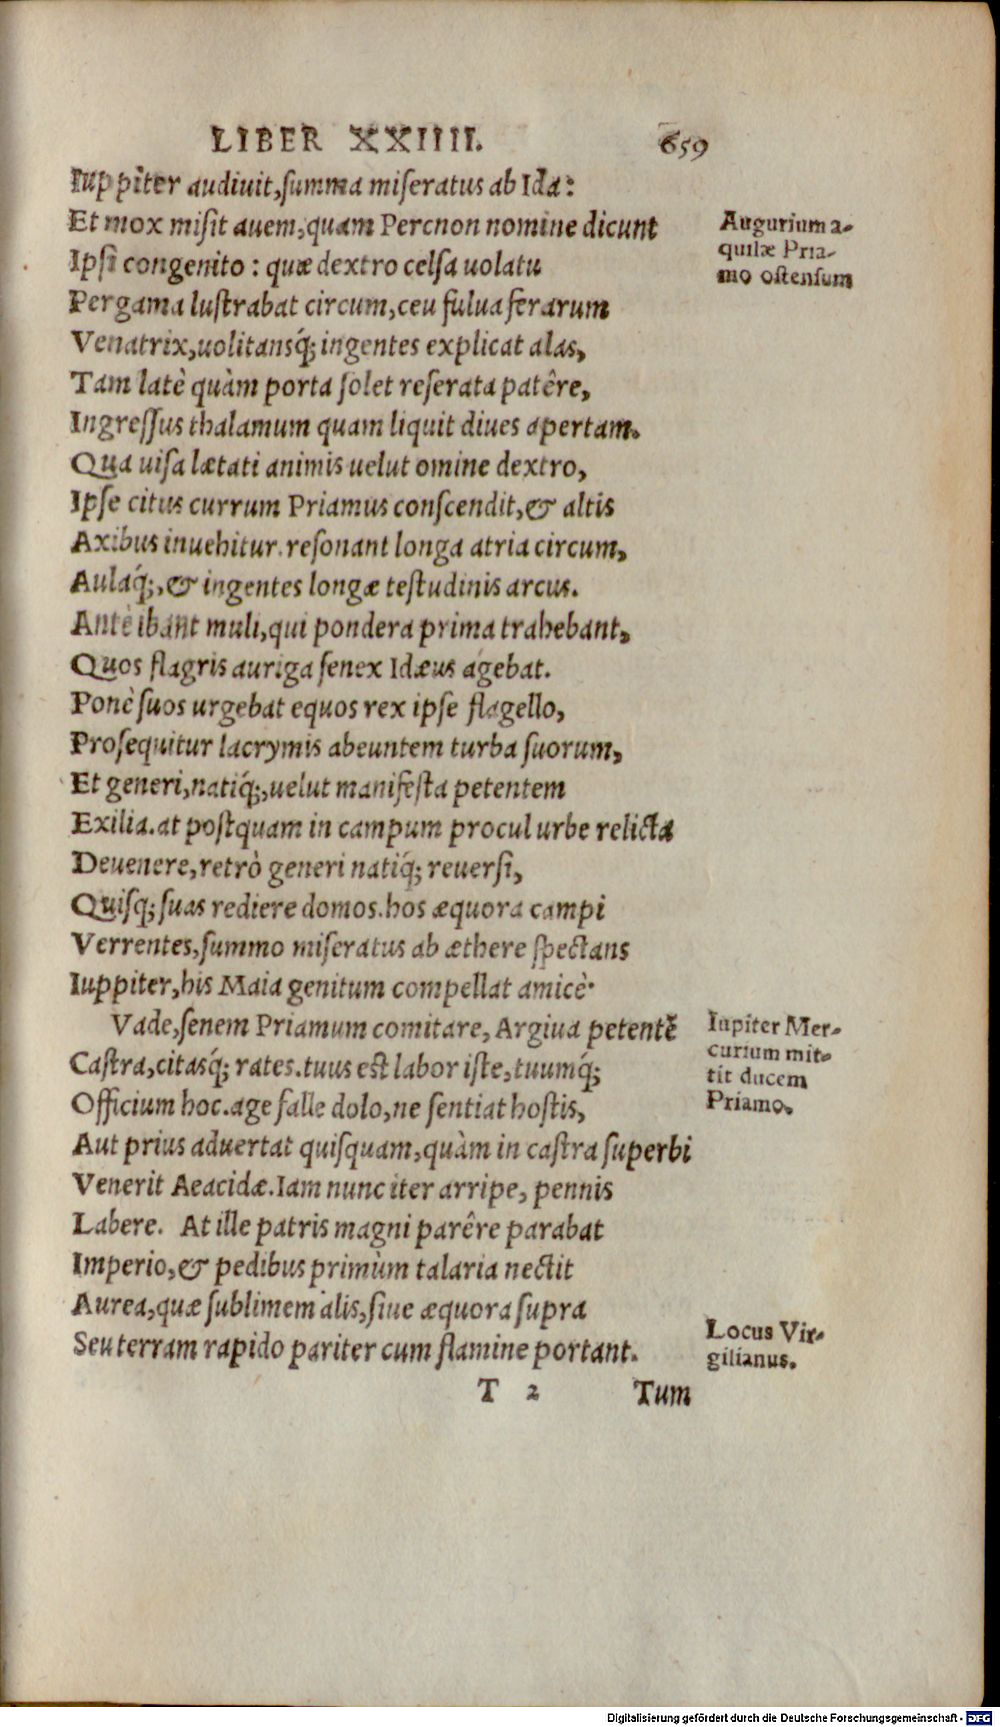 LIBER XXIIII. 659
Iuppiter audiuit, summa miseratus ab Ida:
Et mox misit auem, quam Percnon nomine dicunt
Augurium a-
quilæ Pria-
mo ostensum
Ipsi congenito: quæ dextro celsa uolatu
Pergama lustrabat circum, ceu fulua ferarum
Venatrix, uolitansq́; ingentes explicat alas,
Tam latè quàm porta solet reserata patêre,
Ingressus thalamum quam liquit diues apertam.
Qua uisa lætati animis uelut omine dextro,
Ipse citus currum Priamus conscendit, & altis
Axibus inuehitur. resonant longa atria circum,
Aulaq́;, & ingentes longæ testudinis arcus.
Antè ibant muli, qui pondera prima trahebant,
Quos flagris auriga senex Idæus agebat.
Ponè suos urgebat equos rex ipse flagello,
Prosequitur lacrymis abeuntem turba suorum,
Et generi, natiq́;, uelut manifesta petentem
Exilia. at postquam in campum procul urbe relicta
Deuenere, retrò generi natiq́; reuersi,
Quisq; suas rediere domos. hos æquora campi
Verrentes, summo miseratus ab æthere spectans
Iuppiter, his Maia genitum compellat amicè.
Vade, senem Priamum comitare, Argiua petentē
Iupiter Mer-
curium mit-
tit ducem
Priamo.
Castra, citasq́; rates. tuus est labor iste, tuumq́;
Officium hoc. age falle dolo, ne sentiat hostis,
Aut prius aduertat quisquam, quàm in castra superbi
Venerit Aeacidæ. Iam nunc iter arripe, pennis
Labere. At ille patris magni parêre parabat
Imperio, & pedibus primùm talaria nectit
Aurea, quæ sublimem alis, siue æquora supra
Seu terram rapido pariter cum flamine portant.
Locus Vir-
gilianus.
T 2 Tum
Digitalisierung gefördert durch die Deutsche Forschungsgemeinschaft - DFG